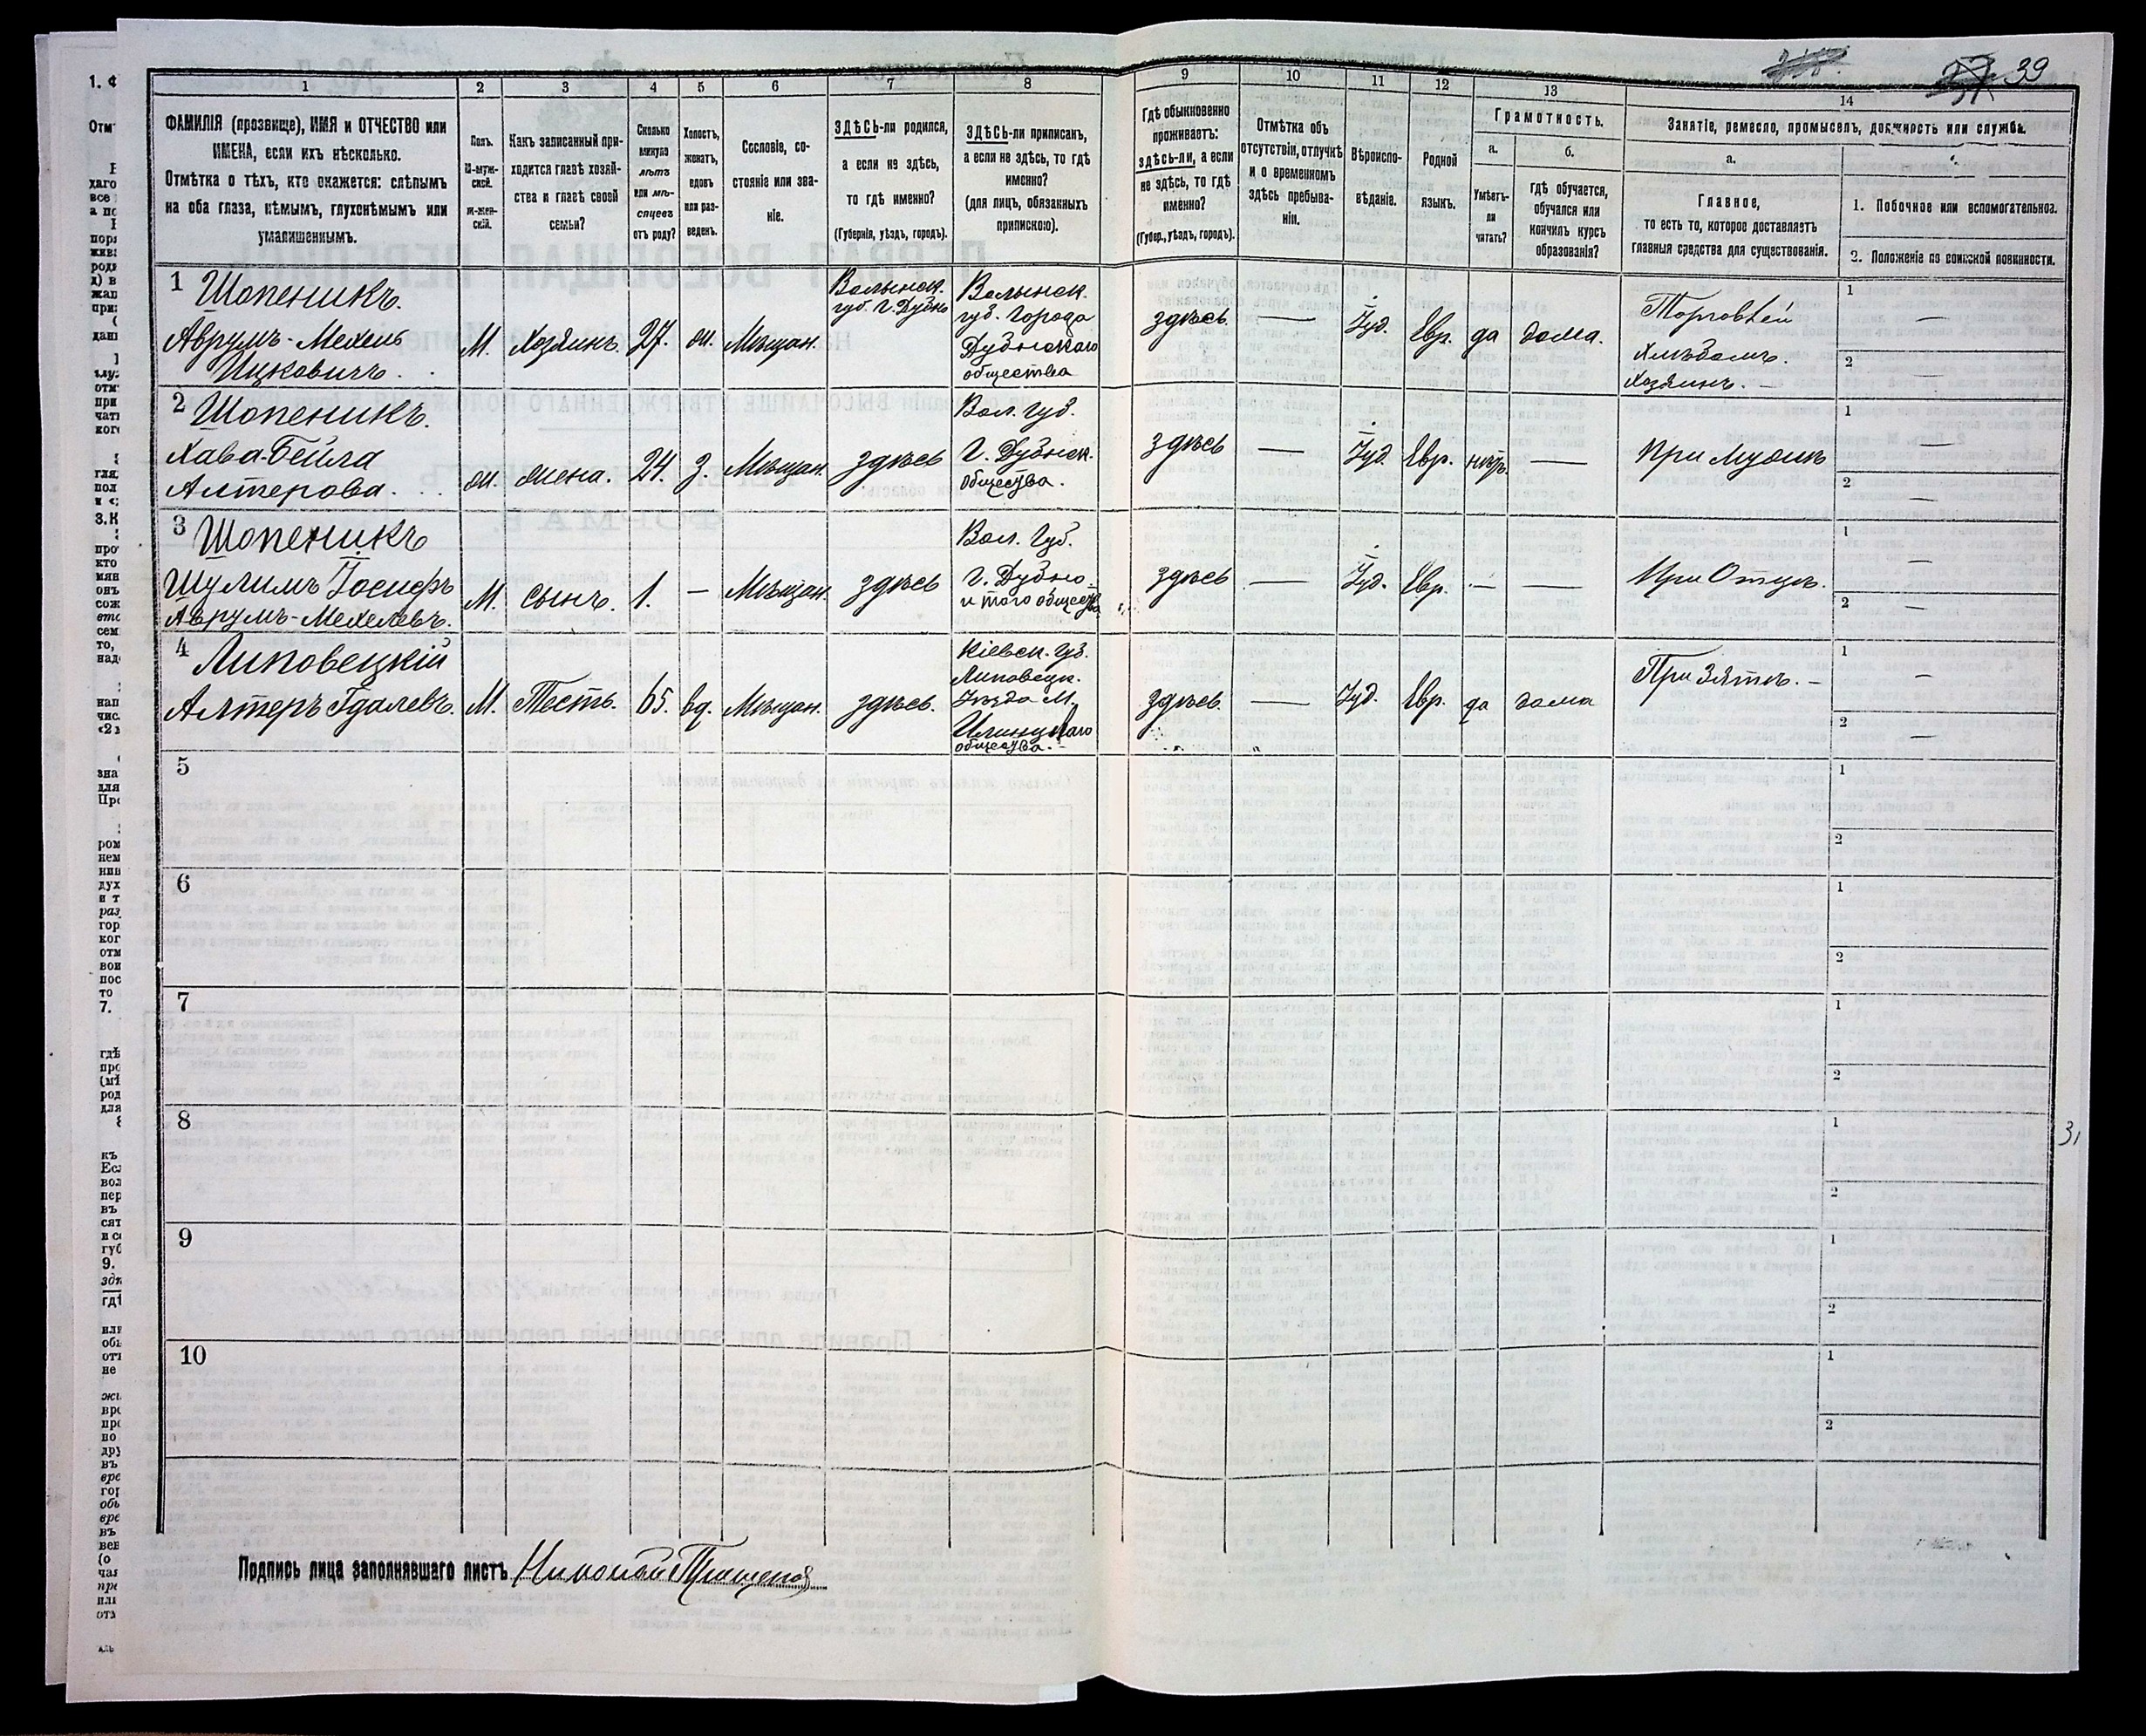 39
1
2
3
4
5
6
7
8
9
10
11
12
13
14
ФАМИЛІЯ (прозвище), ИМЯ и ОТЧЕСТВО или
ИМЕНА, если ихъ нѣсколько.
Отмѣтка о тѣхъ, кто окажется: слѣпымъ
на оба глаза, нѣмымъ, глухонѣмымъ или
умалишеннымъ.
Полъ.
М-муж-
ской.
ж-жен-
скій.
Какъ записанный при-
ходится главѣ хозяй-
ства и главѣ своей
семьи?
Сколько
минуло
лѣтъ
или мѣ-
сяцевъ
отъ роду?
Холостъ,
женатъ,
вдовъ
или раз-
веденъ.
Сословіе, со-
стояніе или зва-
ніе.
ЗДѢСЬ-ли родился,
а если не здѣсь,
то гдѣ именно?
(Губернія, уѣздъ, городъ).
ЗДѢСЬ-ли приписанъ,
а если не здѣсь, то гдѣ
именно?
(для лицъ, обязанныхъ
припискою).
Гдѣ обыкновенно
проживаетъ:
здѣсь-ли, а если
не здѣсь, то гдѣ
именно?
(Губер., уѣздъ, городъ).
Отмѣтка объ
отсутствіи, отлучкѣ
и о временномъ
здѣсь пребыва-
ніи.
Вѣроиспо-
вѣданіе.
Родной
языкъ.
Грамотность.
а.
Умѣетъ-
ли
читать?
б.
гдѣ обучается,
обучался или
кончилъ курсъ
образованія?
Занятіе, ремесло, промыселъ, должность или служба.
а.
Главное,
то есть то, которое доставляетъ
главныя средства для существованія.
1. Побочное или вспомогательное.
2. Положеніе по воинской повинности.
1 Шопеникъ.
Аврумъ-Мехель
Ицковичъ.
М.
Хозяинъ.
27.
ж.
Мѣщан.
Волынск.
губ. г. Дубно
Волынск.
губ. Города
Дубенскаго
общества
здѣсь
—
Іуд.
Евр.
да
дома.
Торговлей
хлѣбомъ.
Хозяинъ. —
1
—
2
—
2 Шопеникъ.
Хава-Бейла
Алтерова.
ж.
жена.
24.
з.
Мѣщан.
здѣсь
Вол. Губ.
Г. Дубенск.
общества.
здѣсь
—
Іуд.
Евр.
нѣтъ
—
При Мужѣ
1
—
2
—
3 Шопеникъ
Шулимъ Іосифъ
Аврумъ-Мехелевъ.
М.
сынъ.
1.
—
Мѣщан.
здѣсь
Вол. Губ.
Г. Дубно
и того общества
здѣсь
—
Іуд.
Евр.
—
—
При Отцѣ.
1
—
2
—
4 Липовецкій
Алтеръ Гдалевъ.
М.
Тесть.
65.
вд.
Мѣщан.
здѣсь.
Кіевск. Губ.
Липовецк.
Уѣзда М.
Илинцкаго
общества. —
здѣсь.
—
Іуд.
Евр.
да
дома
При Зятѣ. —
1
—
2
—
5
1
2
6
1
2
7
1
2
8
1
2
9
1
2
10
1
2
Подпись лица заполнявшаго листъ Николай